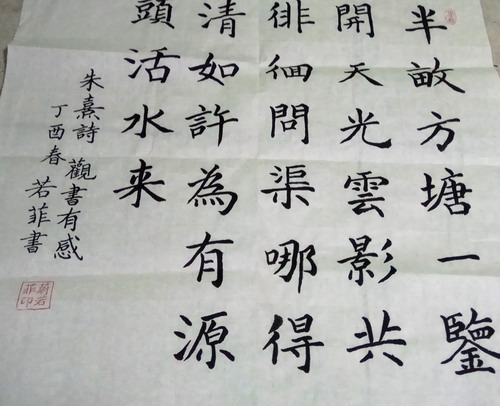 半畝方塘一鑒
開天光雲影共
徘徊問渠哪得
清如許為有源
頭活水来
朱熹詩 觀書有感
丁酉春 若菲書